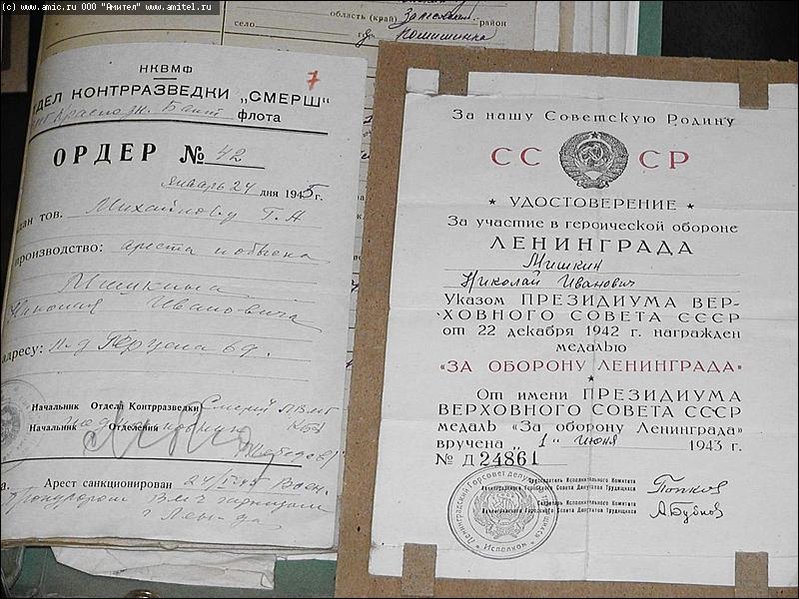 (c) www.amic.ru ООО "Амител" www.amitel.ru
область (край) район
село
НКВМФ
7
ДЕЛ КОНТРРАЗВЕДКИ „СМЕРШ"
Краснозн. Балт флота
ОРДЕР № 42
Январь 24 дня 1945 г.
дан тов. Михайлову Г. А
производство: ареста и обыска
Мишкина
Николая Ивановича
адресу: Герцена 69.
Начальник Отдела Контрразведки Смерш
Начальник Отделения
а. Арест санкционирован 24/I-45 Воен.
г Лен-да
За нашу Советскую Родину
СС СР
★ УДОСТОВЕРЕНИЕ ★
За участие в героической обороне
ЛЕНИНГРАДА
Мишкин
Николай Иванович
Указом ПРЕЗИДИУМА ВЕР-
ХОВНОГО СОВЕТА СССР
от 22 декабря 1942 г. награжден
медалью
«ЗА ОБОРОНУ ЛЕНИНГРАДА»
★
От имени ПРЕЗИДИУМА
ВЕРХОВНОГО СОВЕТА СССР
медаль «За оборону Ленинграда»
вручена „1" июня 1943 г.
№ Д 24861
Председатель Исполнительного Комитета
Ленинградского Горсовета Депутатов Трудящихся
Попков
Секретарь Исполнительного Комитета
Ленинградского Горсовета Депутатов Трудящихся
А Бубнов
Ленинградский Горсовет депутатов трудящихся
Исполком